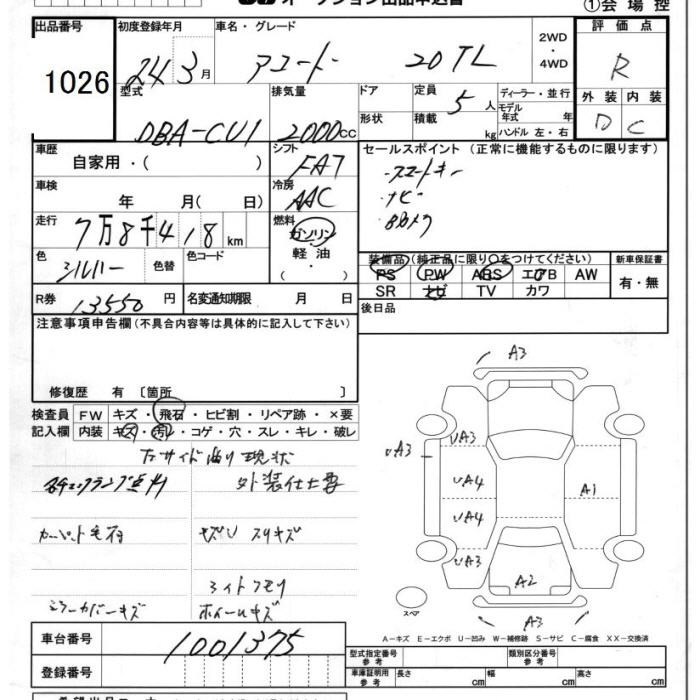 ①会場控
出品番号 1026
初度登録年月 24 3月
車名・グレード アコード 20TL
2WD・4WD
評価点 R
型式 DBA-CU1
排気量 2000cc
ドア
形状
定員 5人
積載 kg
ディーラー・並行
モデル年式 年
ハンドル 左・右
外装 内装
D C
車歴 自家用・( )
シフト FA7
セールスポイント (正常に機能するものに限ります)
・スマートキー
・ナビ
・Bカメラ
車検 年 月( 日)
冷房 AAC
走行 7万8千418km
燃料 ガソリン
軽油
・( )・
色 シルバー 色替 色コード
装備品 (純正品に限り○をつけてください)
新車保証書
PS PW ABS エアB AW
有・無
SR ナビ TV カワ
R券 13550円
名変通知期限 月 日
後日品
注意事項申告欄 (不具合内容等は具体的に記入して下さい)
修復歴 有 〔箇所 〕
検査員記入欄
FW キズ・飛石・ヒビ割・リペア跡・×要
内装 キズ・汚れ・コゲ・穴・スレ・キレ・破レ
現状
外装仕上要
キズU スリキズ
ライトクモリ
ミラーカバーキズ
ホイールキズ
A3
UA3
UA3
UA4
A1
UA4
UA3
A2
A3
スペア
A-キズ E-エクボ U-凹み W-補修跡 S-サビ C-腐食 XX-交換済
車台番号 1001375
型式指定番号 参考
類別区分番号 参考
登録番号
車庫証明用 参考
長さ cm
幅 cm
高さ cm